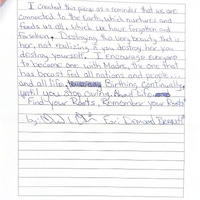 I created this piece as a reminder that we are
connected to the Earth, which nurtures and
feeds us all, which we have forgotten and
forsaken. Destroying the very beauty that is
her, not realizing if you destroy her you
destroy yourself. I Encourage everyone
to become one with Madre, the one that
has breast fed all nations and people...
and all life. Birthing continually,
until you stop caring About life
Find your Roots, Remember your Roots
by: For: Demond